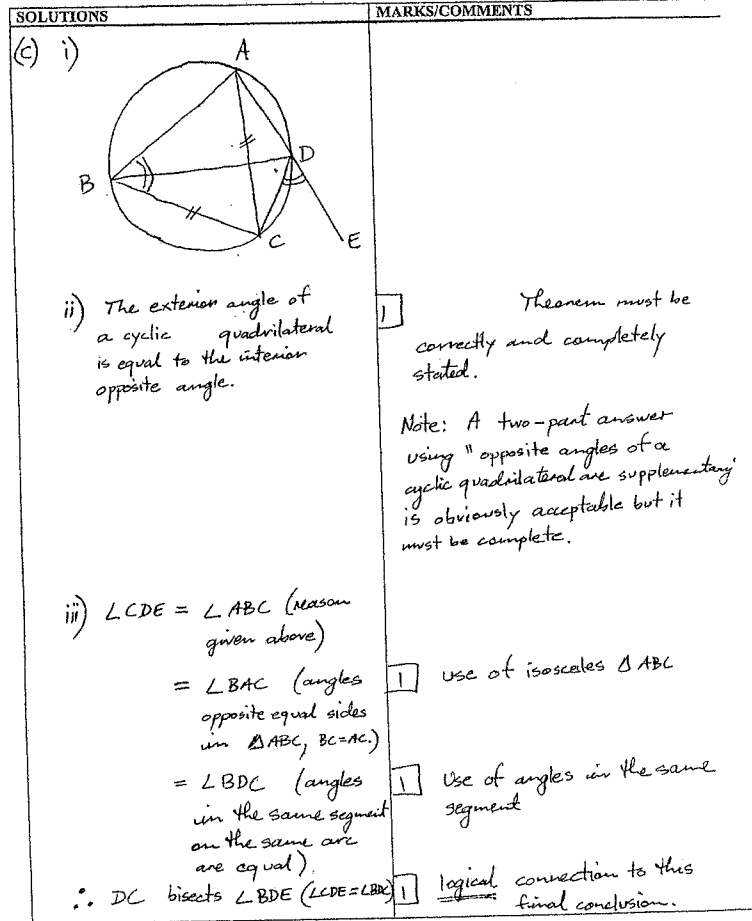 SOLUTIONS
MARKS/COMMENTS
(c) i)
A
B
D
C
E
ii) The exterior angle of
a cyclic quadrilateral
is equal to the interior
opposite angle.
1
Theorem must be
correctly and completely
stated.
Note: A two-part answer
using "opposite angles of a
cyclic quadrilateral are supplementary"
is obviously acceptable but it
must be complete.
iii) ∠CDE = ∠ABC (reason
given above)
= ∠BAC (angles
opposite equal sides
in ΔABC, BC=AC.)
1 use of isosceles Δ ABC
= ∠BDC (angles
in the same segment
on the same arc
are equal)
1 Use of angles in the same
segment
∴ DC bisects ∠BDE (∠CDE=∠BDC)
1 logical connection to this
final conclusion.